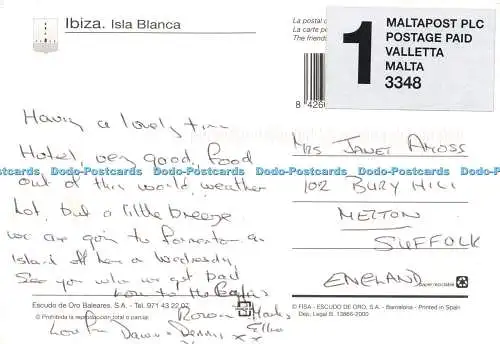 Ibiza. Isla Blanca
La postal
La carte po
The friendl
8 4260
1
MALTAPOST PLC
POSTAGE PAID
VALLETTA
MALTA
3348
Having a lovely time
Hotel, very good, food
out of this world, weather
hot, but a little breeze
we are going to Formentera an
Island off here Wednesday
See you when we get back
Love to the
Love from Dawn Dennis x x
MRS JANET AMOSS
102 BURY HILL
MELTON
SUFFOLK
ENGLAND
paper recyclable
Escudo de Oro Baleares. S.A. - Tel. 971 43 22
© Prohibida la reproducción total o parcial
© FISA - ESCUDO DE ORO, S.A. - Barcelona - Printed in Spain
Dep. Legal B. 13866-2000
Dodo-Postcards Dodo-Postcards Dodo-Postcards Dodo-Postcards